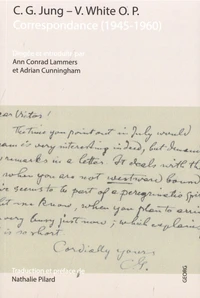 C. G. Jung – V. White O. P.
Correspondance (1945-1960)
Dirigée et introduite par
Ann Conrad Lammers
et Adrian Cunningham
Dear Victor!
The time you point out in July would
is very interesting indeed, but I
remarks in a letter. It deals with th
when you are not westward bound
seems to be part of a peregrina
me know, when you plan to arri
very busy just now; which explain
is so short
Cordially yours
C.G.
Traduction et préface de
Nathalie Pilard
GEORG